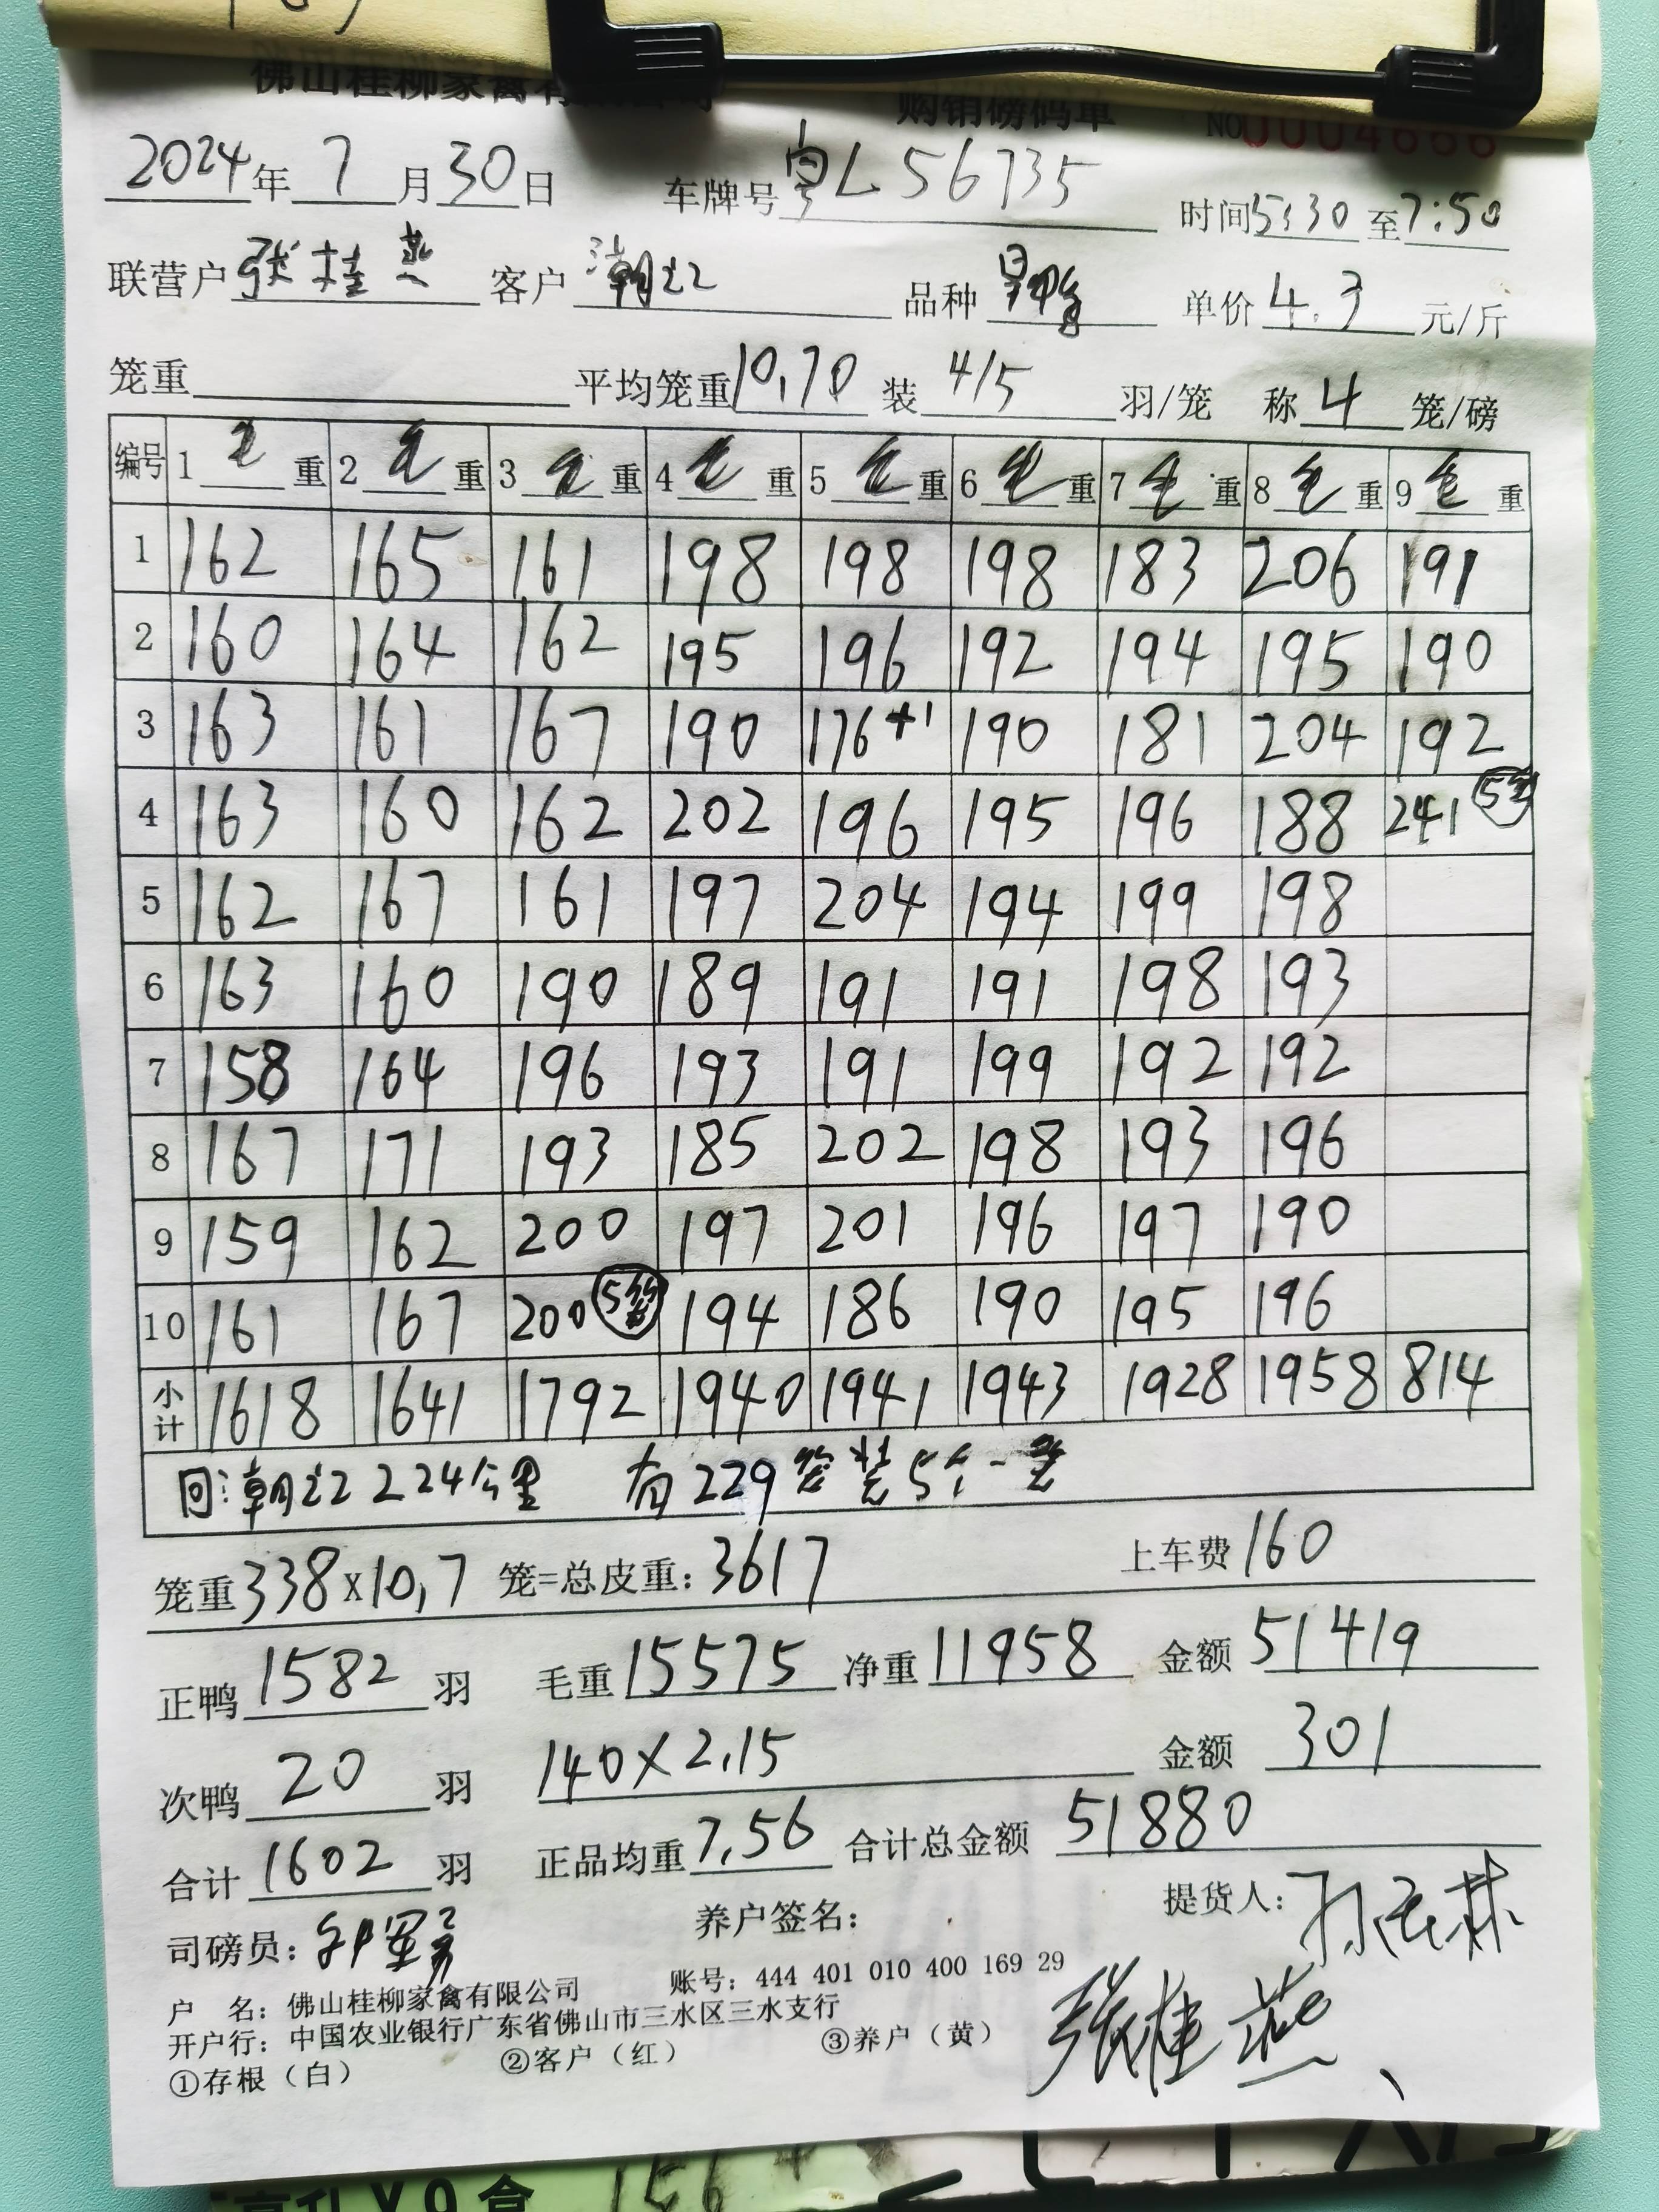 佛山桂柳家禽有 公司 购销磅码单 NO 0004666
2024年 7 月 30 日 车牌号 粤L 56735 时间 5:30 至 7:50
联营户 张桂燕 客户 潮江 品种 单价 4.3 元/斤
笼重 平均笼重 10.70 装 4/5 羽/笼 称 4 笼/磅
编号 1 毛 重 2 毛 重 3 毛 重 4 毛 重 5 毛 重 6 毛 重 7 毛 重 8 毛 重 9 毛 重
1 162 165 161 198 198 198 183 206 191
2 160 164 162 195 196 192 194 195 190
3 163 161 167 190 176+1 190 181 204 192
4 163 160 162 202 196 195 196 188 241 5笼
5 162 167 161 197 204 194 199 198
6 163 160 190 189 191 191 198 193
7 158 164 196 193 191 199 192 192
8 167 171 193 185 202 198 193 196
9 159 162 200 197 201 196 197 190
10 161 167 200 5笼 194 186 190 195 196
小计 1618 1641 1792 1940 1941 1943 1928 1958 814
回潮江 224公里 有229笼装5个一笼
笼重 338×10.7 笼=总皮重: 3617 上车费 160
正鸭 1582 羽 毛重 15575 净重 11958 金额 51419
次鸭 20 羽 140×2.15 金额 301
合计 1602 羽 正品均重 7.56 合计总金额 51880
司磅员: 养户签名: 提货人:
张桂燕
户 名: 佛山桂柳家禽有限公司 账号: 444 401 010 400 169 29
开户行: 中国农业银行广东省佛山市三水区三水支行
①存根(白) ②客户(红) ③养户(黄)
156